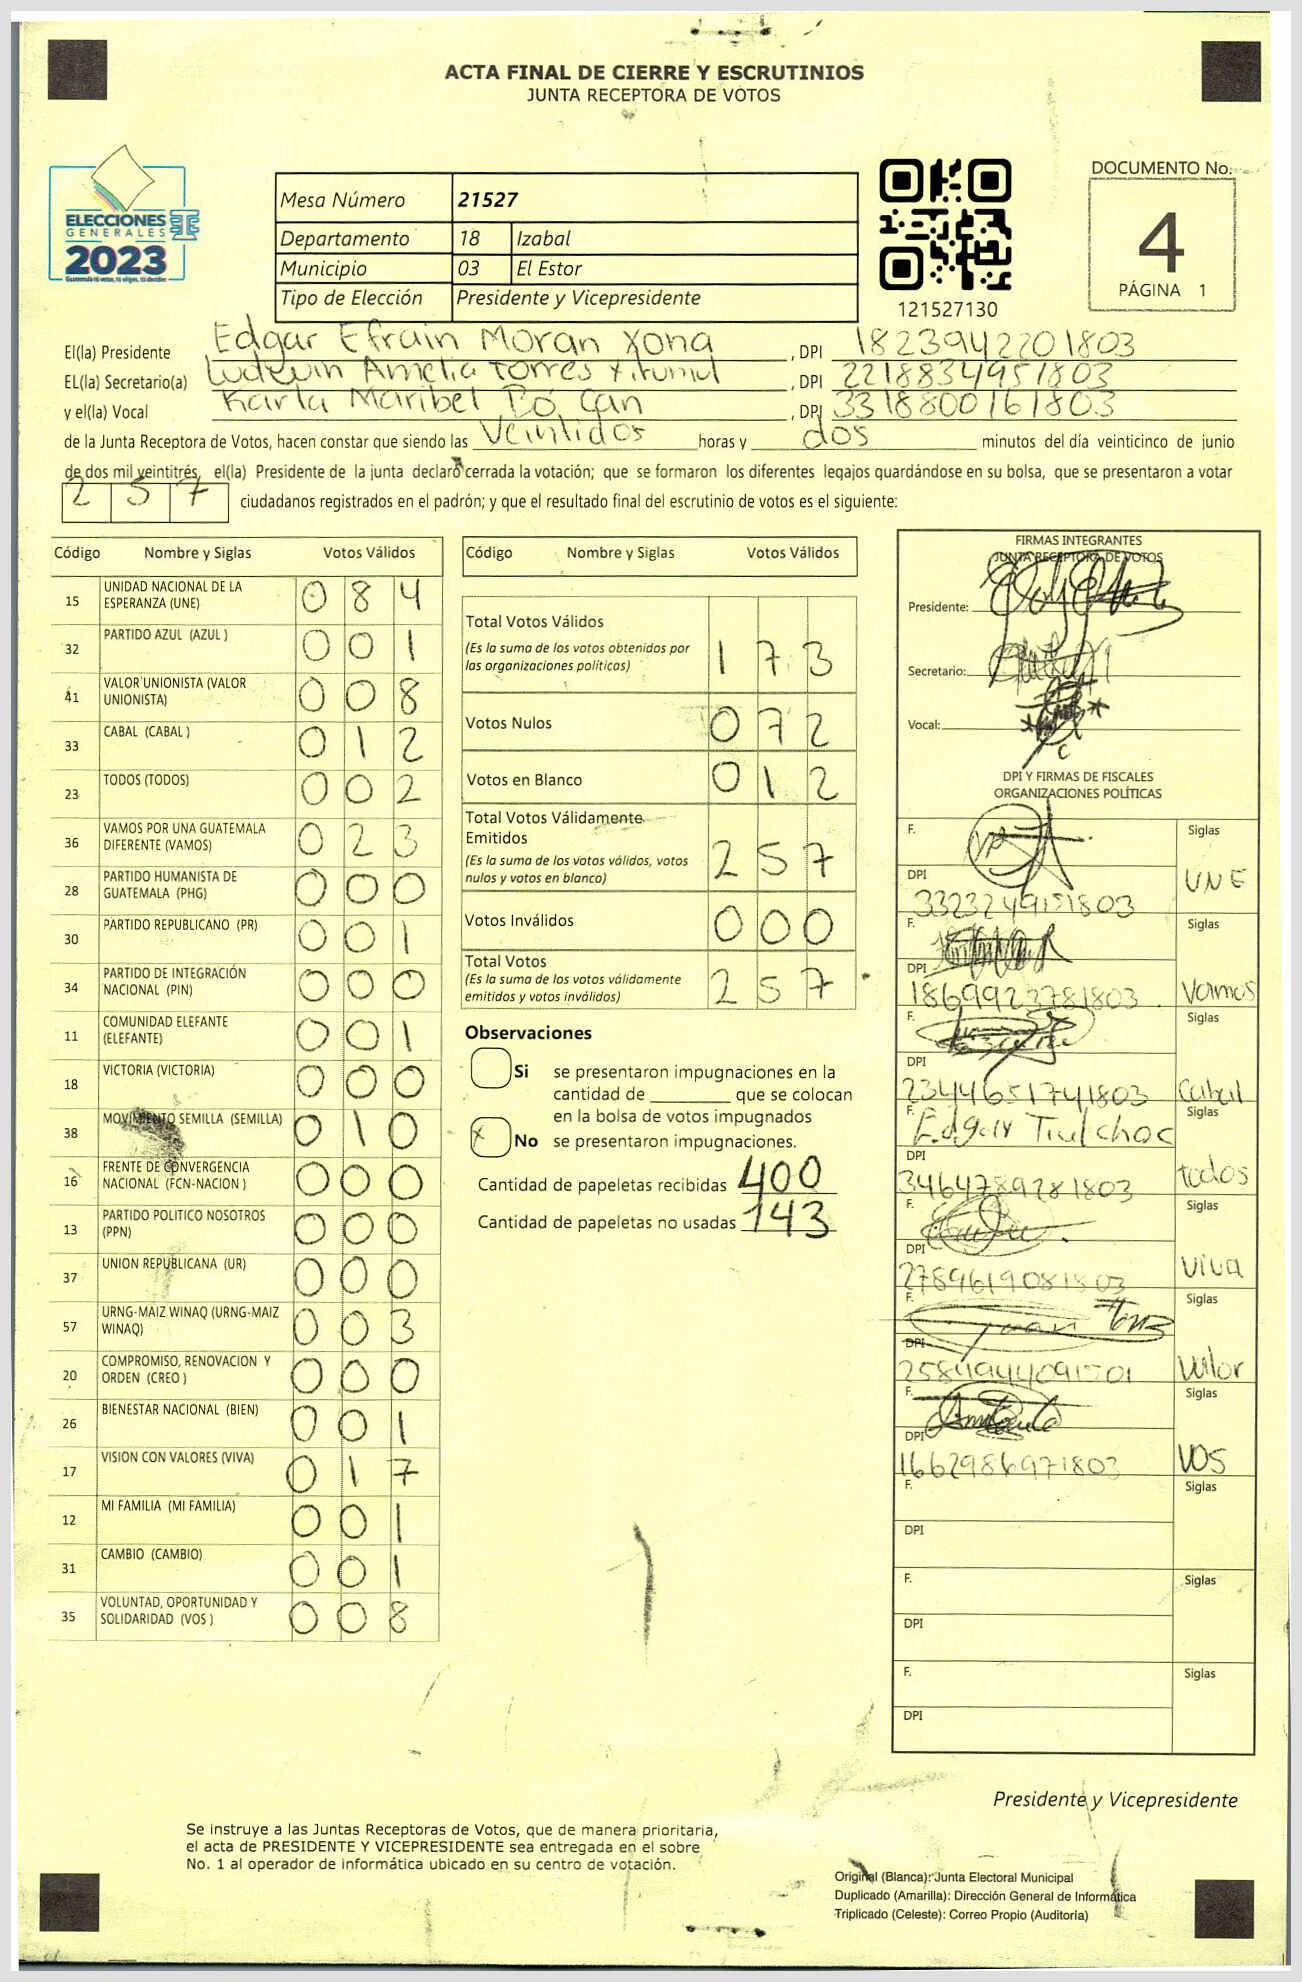 ACTA FINAL DE CIERRE Y ESCRUTINIOS
JUNTA RECEPTORA DE VOTOS
ELECCIONES
GENERALES
2023
Mesa Número 21527
Departamento 18 Izabal
Municipio 03 El Estor
Tipo de Elección Presidente y Vicepresidente
121527130
DOCUMENTO No.
4
PÁGINA 1
El(la) Presidente Edgar Efrain Moran Xona, DPI 1823942201803
EL(la) Secretario(a) Amelia Torres, DPI 2218834951803
y el(la) Vocal Karla Maribel Bó Can, DPI 3318800161803
de la Junta Receptora de Votos, hacen constar que siendo las Veintidos horas y dos minutos del día veinticinco de junio
de dos mil veintitrés, el(la) Presidente de la junta declaró cerrada la votación; que se formaron los diferentes legajos quardándose en su bolsa, que se presentaron a votar
2 5 7 ciudadanos registrados en el padrón; y que el resultado final del escrutinio de votos es el siguiente:
Código Nombre y Siglas Votos Válidos
15 UNIDAD NACIONAL DE LA ESPERANZA (UNE) 0 8 4
32 PARTIDO AZUL (AZUL ) 0 0 1
41 VALOR UNIONISTA (VALOR UNIONISTA) 0 0 8
33 CABAL (CABAL ) 0 1 2
23 TODOS (TODOS) 0 0 2
36 VAMOS POR UNA GUATEMALA DIFERENTE (VAMOS) 0 2 3
28 PARTIDO HUMANISTA DE GUATEMALA (PHG) 0 0 0
30 PARTIDO REPUBLICANO (PR) 0 0 1
34 PARTIDO DE INTEGRACIÓN NACIONAL (PIN) 0 0 0
11 COMUNIDAD ELEFANTE (ELEFANTE) 0 0 1
18 VICTORIA (VICTORIA) 0 0 0
38 MOVIMIENTO SEMILLA (SEMILLA) 0 1 0
16 FRENTE DE CONVERGENCIA NACIONAL (FCN-NACION ) 0 0 0
13 PARTIDO POLITICO NOSOTROS (PPN) 0 0 0
37 UNION REPUBLICANA (UR) 0 0 0
57 URNG-MAIZ WINAQ (URNG-MAIZ WINAQ) 0 0 3
20 COMPROMISO, RENOVACION Y ORDEN (CREO ) 0 0 0
26 BIENESTAR NACIONAL (BIEN) 0 0 1
17 VISION CON VALORES (VIVA) 0 1 7
12 MI FAMILIA (MI FAMILIA) 0 0 1
31 CAMBIO (CAMBIO) 0 0 1
35 VOLUNTAD, OPORTUNIDAD Y SOLIDARIDAD (VOS ) 0 0 8
Código Nombre y Siglas Votos Válidos
Total Votos Válidos 1 7 3
(Es la suma de los votos obtenidos por
las organizaciones políticas)
Votos Nulos 0 7 2
Votos en Blanco 0 1 2
Total Votos Válidamente
Emitidos 2 5 7
(Es la suma de los votos válidos, votos
nulos y votos en blanco)
Votos Inválidos 0 0 0
Total Votos 2 5 7
(Es la suma de los votos válidamente
emitidos y votos inválidos)
Observaciones
Si se presentaron impugnaciones en la
cantidad de ________ que se colocan
en la bolsa de votos impugnados
X No se presentaron impugnaciones.
Cantidad de papeletas recibidas 400
Cantidad de papeletas no usadas 143
FIRMAS INTEGRANTES
JUNTA RECEPTORA DE VOTOS
Presidente:
Secretario:
Vocal:
DPI Y FIRMAS DE FISCALES
ORGANIZACIONES POLÍTICAS
F. Siglas
DPI 3323249151803 UNE
F. Siglas
DPI 1869923781803 Vamos
F. Siglas
DPI 2344651741803 Cabal
F. Edgar Tiul choc Siglas
DPI 3464789281803 todos
F. Siglas
DPI 2789619081803 VIVA
F. Juan Siglas
DPI 2584944091501 Valor
F. Siglas
DPI 1662986971803 VOS
F. Siglas
DPI
F. Siglas
DPI
F. Siglas
DPI
Presidente y Vicepresidente
Se instruye a las Juntas Receptoras de Votos, que de manera prioritaria,
el acta de PRESIDENTE Y VICEPRESIDENTE sea entregada en el sobre
No. 1 al operador de informática ubicado en su centro de votación.
Original (Blanca): Junta Electoral Municipal
Duplicado (Amarilla): Dirección General de Informática
Triplicado (Celeste): Correo Propio (Auditoría)